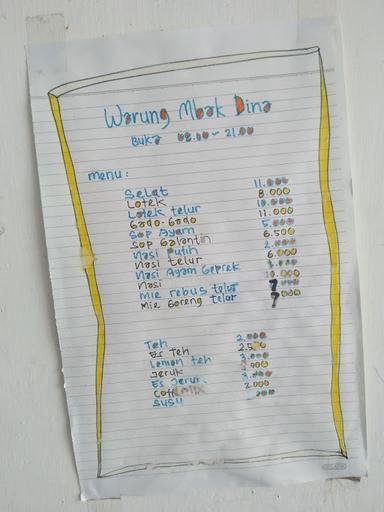 Warung Mbak Dina
Buka 08.00 - 21.00
menu:
Selat 11.000
Lotek 8.000
Lotek telur 10.000
Gado-Gado 11.000
Sop Ayam 5.000
Sop Galantin 6.500
Nasi Putih 2.000
Nasi telur 6.000
Nasi Ayam Geprek
Nasi 10.000
Mie rebus telur 7000
Mie Goreng telor 7
Teh 2.000
Es Teh 2.500
Lemon teh 3.000
Jeruk
Es Jeruk 3.000
Coffemix 3.000
Susu